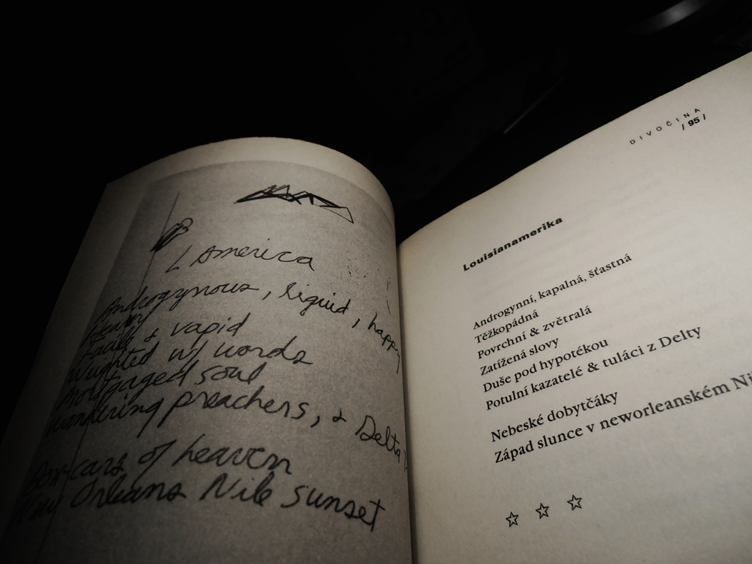 L America
Androgynous, liquid, happy
Heavy
Facile & vapid
Weighted w/ words
Mortgaged soul
Wandering preachers, & Delta
Box-cars of heaven
New Orleans Nile sunset
DIVOČINA
/ 95 /
Louisianamerika
Androgynní, kapalná, šťastná
Těžkopádná
Povrchní & zvětralá
Zatížená slovy
Duše pod hypotékou
Potulní kazatelé & tuláci z Delty
Nebeské dobytčáky
Západ slunce v neworleanském